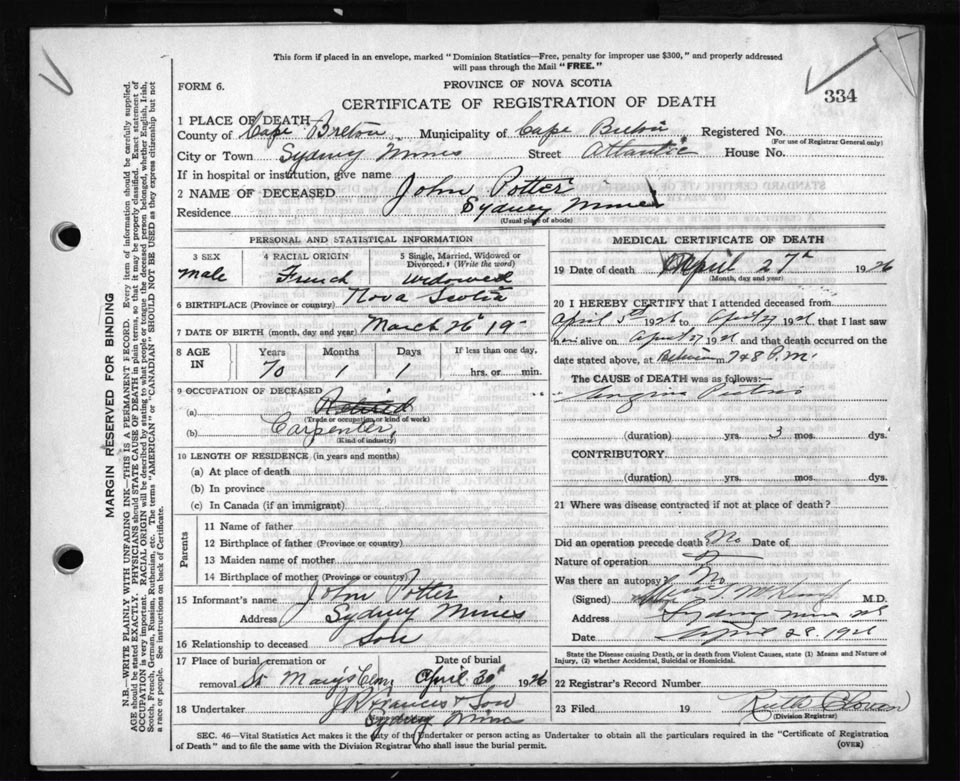 This form if placed in an envelope, marked "Dominion Statistics—Free, penalty for improper use $300," and properly addressed
will pass through the Mail "FREE."
FORM 6.
PROVINCE OF NOVA SCOTIA
CERTIFICATE OF REGISTRATION OF DEATH
334
1 PLACE OF DEATH
County of Cape Breton Municipality of Cape Breton Registered No.
(For use of Registrar General only)
City or Town Sydney Mines Street Atlantic House No.
If in hospital or institution, give name
2 NAME OF DECEASED John Potter
Residence Sydney Mines
(Usual place of abode)
PERSONAL AND STATISTICAL INFORMATION
3 SEX 4 RACIAL ORIGIN 5 Single, Married, Widowed or Divorced. (Write the word)
Male French Widowed
6 BIRTHPLACE (Province or country) Nova Scotia
7 DATE OF BIRTH (month, day and year) March 26 19-
8 AGE IN Years Months Days If less than one day,
70 1 1 hrs. or min.
9 OCCUPATION OF DECEASED
(a) Retired
(Trade or occupation or kind of work)
(b) Carpenter
(Kind of industry)
10 LENGTH OF RESIDENCE (in years and months)
(a) At place of death
(b) In province
(c) In Canada (if an immigrant)
Parents
11 Name of father
12 Birthplace of father (Province or country)
13 Maiden name of mother
14 Birthplace of mother (Province or country)
15 Informant's name John Potter
Address Sydney Mines
16 Relationship to deceased Son
17 Place of burial, cremation or removal Date of burial
St Mary's April 30 1926
18 Undertaker Francis & Son
Sydney Mines
MEDICAL CERTIFICATE OF DEATH
19 Date of death April 27th 1926
(Month, day and year)
20 I HEREBY CERTIFY that I attended deceased from
April 5th 1926 to April 27 1926 that I last saw
him alive on April 27 1926 and that death occurred on the
date stated above, at Between 7 & 8 P.m.
The CAUSE of DEATH was as follows:
Angina Pectoris
(duration) yrs. 3 mos. dys.
CONTRIBUTORY
(duration) yrs. mos. dys.
21 Where was disease contracted if not at place of death?
Did an operation precede death No Date of
Nature of operation
Was there an autopsy? No
(Signed) M.D.
Address Sydney Mines NS
Date April 28. 1926
State the Disease causing Death, or in death from Violent Causes, state (1) Means and Nature of
Injury, (2) whether Accidental, Suicidal or Homicidal.
22 Registrar's Record Number
23 Filed 19 Ruth
(Division Registrar)
SEC. 46—Vital Statistics Act makes it the duty of the Undertaker or person acting as Undertaker to obtain all the particulars required in the "Certificate of Registration
of Death" and to file the same with the Division Registrar who shall issue the burial permit.
(OVER)
MARGIN RESERVED FOR BINDING
N.B.—WRITE PLAINLY WITH UNFADING INK—THIS IS A PERMANENT RECORD. Every item of information should be carefully supplied.
AGE should be stated EXACTLY. PHYSICIANS should STATE CAUSE OF DEATH in plain terms, so that it may be properly classified. Exact statement of
OCCUPATION is very important. RACIAL ORIGIN will be described by stating to what people or tongue the deceased person belonged, whether English, Irish,
Scotch, French, German, Russian, Ruthenian, etc. The terms "AMERICAN" or "CANADIAN" SHOULD NOT BE USED as they express citizenship but not
a race or people. See instructions on back of Certificate.